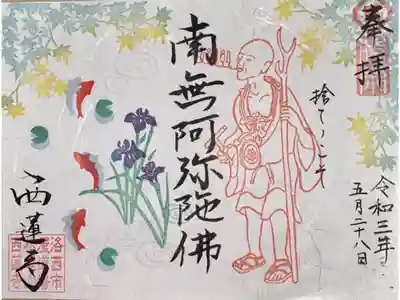 奉拝
捨ててこそ
南無阿弥陀佛
令和三年
五月二十八日
西蓮寺